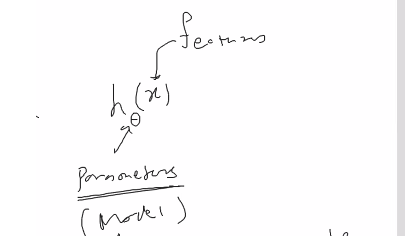 features
h_θ(x)
Parameters
(Model)